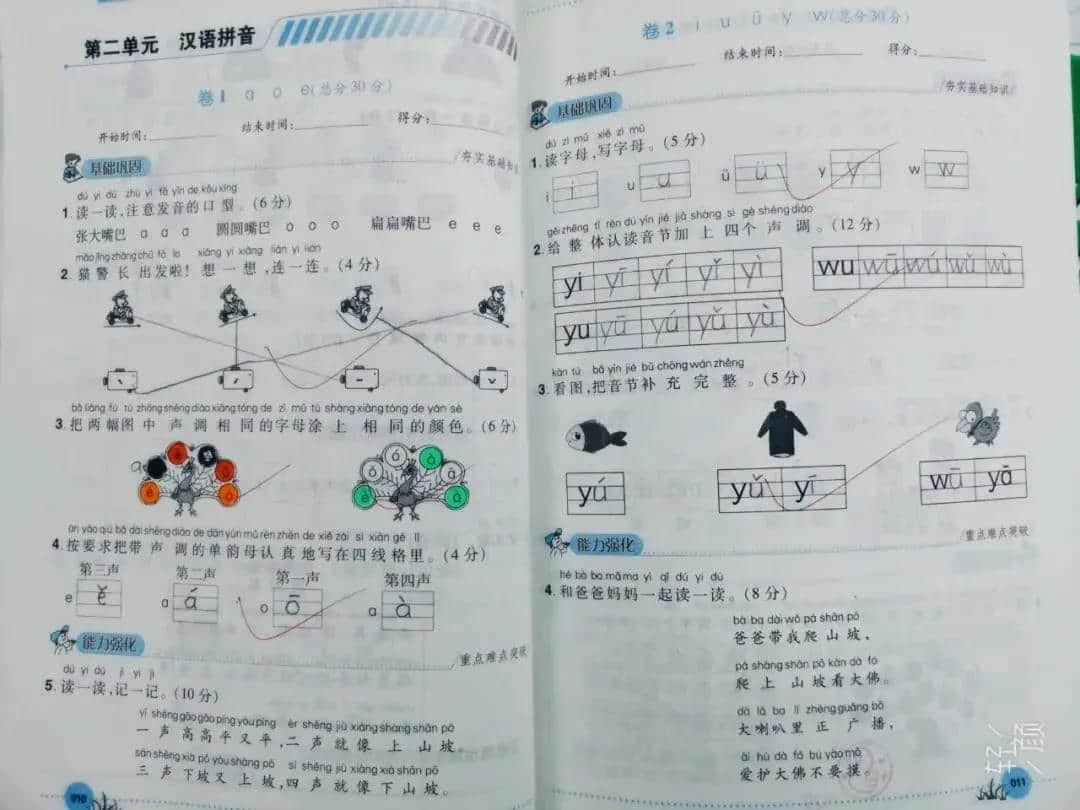 第二单元 汉语拼音
卷1 a o e(总分30分)
开始时间: 结束时间: 得分:
基础巩固
夯实基础知识
dú yi dú zhù yì fā yīn de kǒu xíng
1.读一读,注意发音的口型。(6分)
张大嘴巴 a a a 圆圆嘴巴 o o o 扁扁嘴巴 e e e
māo jǐng zhǎng chū fā la xiǎng yi xiǎng lián yi lián
2.猫警长出发啦!想一想,连一连。(4分)
bǎ liǎng fú tú zhōng shēng diào xiāng tóng de zì mǔ tú shàng xiāng tóng de yán sè
3.把两幅图中声调相同的字母涂上相同的颜色。(6分)
àn yāo qiú bǎ dài shēng diào de dān yùn mǔ rèn zhēn de xiě zài sì xiàn gé lǐ
4.按要求把带声调的单韵母认真地写在四线格里。(4分)
第三声 第二声 第一声 第四声
e ě a á o ō a à
能力强化
重点难点突破
dú yi dú jì yi jì
5.读一读,记一记。(10分)
yī shēng gāo gāo píng yòu píng èr shēng jiù xiàng shàng shān pō
一声高高平又平,二声就像上山坡,
sān shēng xià pō yòu shàng pō sì shēng jiù xiàng xià shān pō
三声下坡又上坡,四声就像下山坡。
010
卷2 i u ü y w(总分30分)
开始时间: 结束时间: 得分:
夯实基础知识
基础巩固
dú zì mǔ xiě zì mǔ
1.读字母,写字母。(5分)
i i u u ü ü y y w w
gěi zhěng tǐ rèn dú yīn jié jiā shàng sì gè shēng diào
2.给整体认读音节加上四个声调。(12分)
yi yī yí yǐ yì wu wū wú wǔ wù
yu yū yú yǔ yù
kàn tú bǎ yīn jié bǔ chōng wán zhěng
3.看图,把音节补充完整。(5分)
yú yǔ yī wū yā
能力强化
重点难点突破
hé bà ba mā ma yì qǐ dú yi dú
4.和爸爸妈妈一起读一读。(8分)
bà ba dài wǒ pá shān pō
爸爸带我爬山坡,
pá shàng shān pō kàn dà fó
爬上山坡看大佛。
dà lǎ ba lǐ zhèng guǎng bō
大喇叭里正广播,
ài hù dà fó bú yào mō
爱护大佛不要摸。
011